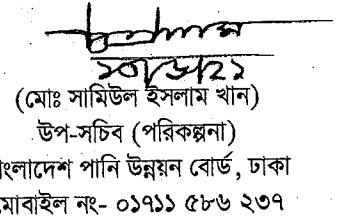 ১০/৬/২১
(মোঃ সামিউল ইসলাম খান)
উপ-সচিব (পরিকল্পনা)
বাংলাদেশ পানি উন্নয়ন বোর্ড, ঢাকা
মোবাইল নং- ০১৭১১ ৫৮৬ ২৩৭